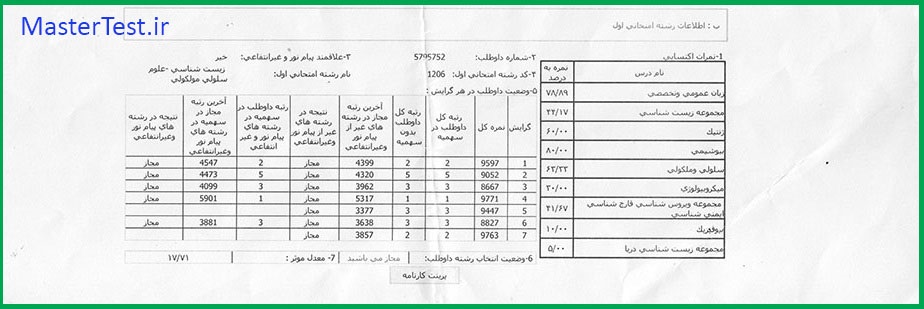 MasterTest.ir
ب : اطلاعات رشته امتحانی اول
1-نمرات اکتسابی
نام درس	نمره به درصد
زبان عمومی وتخصصی	۷۸/۸۹
مجموعه زیست شناسی	۲۴/۱۷
ژنتیک	۶۰/۰۰
بیوشیمی	۸۰/۰۰
سلولی وملکولی	۶۳/۳۳
میکروبیولوژی	۳۰/۰۰
مجموعه ویروس شناسی قارچ شناسی ایمنی شناسی	۴۱/۶۷
بیوفیزیک	۱۰/۰۰
مجموعه زیست شناسی دریا	۵/۰۰
۲-شماره داوطلب: 5795752
۳-علاقمند پیام نور و غیرانتفاعی: خیر
۴-کد رشته امتحانی اول: 1206
نام رشته امتحانی اول: زیست شناسی -علوم سلولی مولکولی
۵-وضعیت داوطلب در هر گرایش :
گرایش	نمره کل	رتبه کل داوطلب در سهمیه	رتبه کل داوطلب بدون سهمیه	آخرین رتبه مجاز در رشته های غیر از پیام نور وغیرانتفاعی	نتیجه در رشته های غیر از پیام نور وغیرانتفاعی	رتبه داوطلب در سهمیه در رشته های پیام نور و غیر انتفاعی	آخرین رتبه مجاز در سهمیه در رشته های پیام نور وغیرانتفاعی	نتیجه در رشته های پیام نور وغیرانتفاعی
1	9597	2	2	4399	مجاز	2	4547	مجاز
2	9052	5	5	4320	مجاز	5	4473	مجاز
3	8667	3	3	3962	مجاز	3	4099	مجاز
4	9771	1	1	5317	مجاز	1	5901	مجاز
5	9447	3	3	3377	مجاز
6	8827	3	3	3638	مجاز	3	3881	مجاز
7	9763	2	2	3857	مجاز
6-وضعیت انتخاب رشته داوطلب: مجاز می باشید
7- معدل موثر : ۱۷/۷۱
پرینت کارنامه